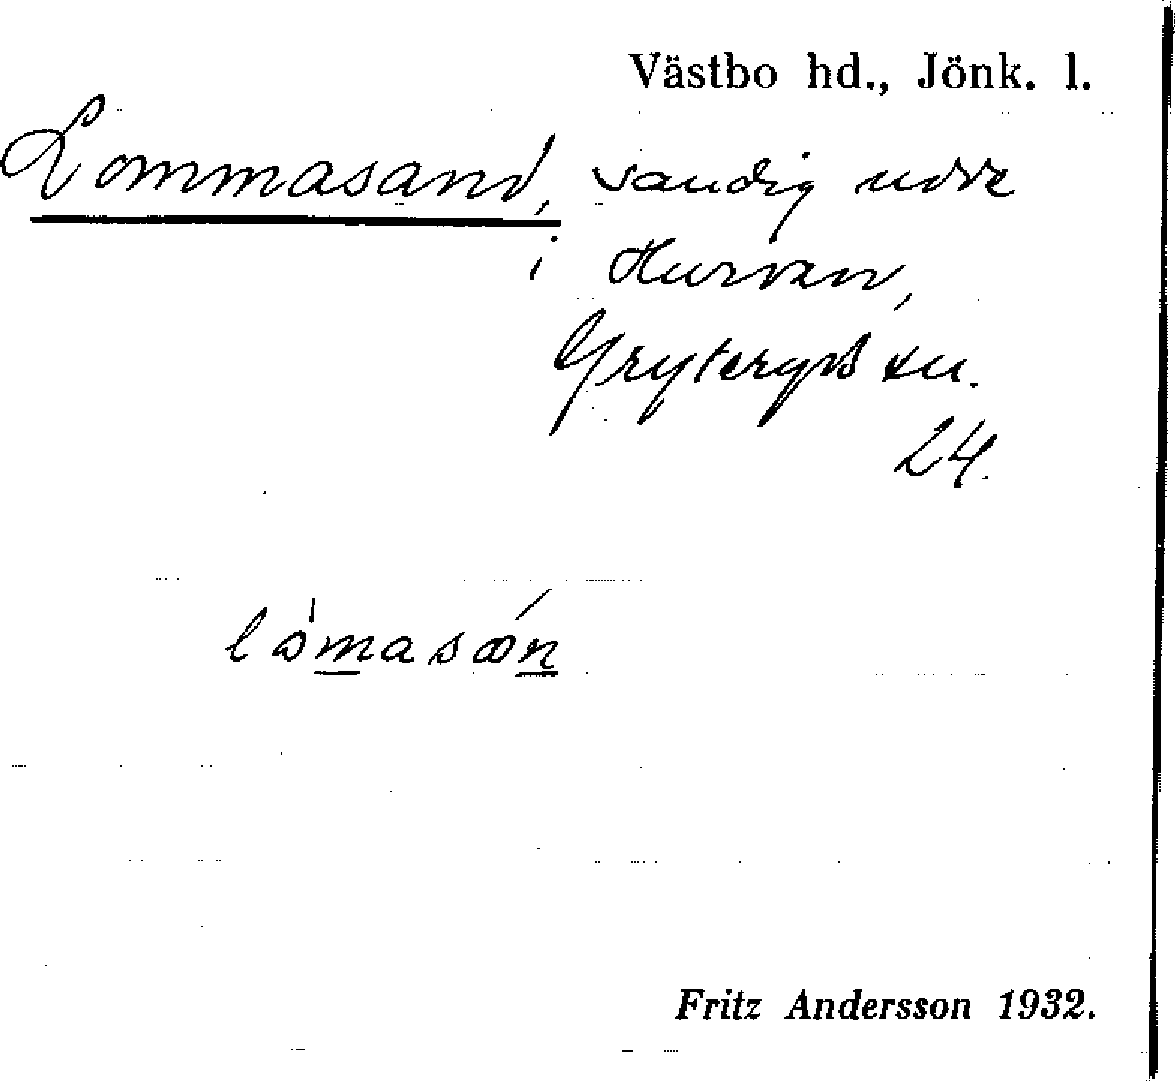 Västbo hd., Jönk. l.
Lommasand, sandig udde
i Hurven,
Gryteryds sn.
24.
lòmasán
Fritz Andersson 1932.